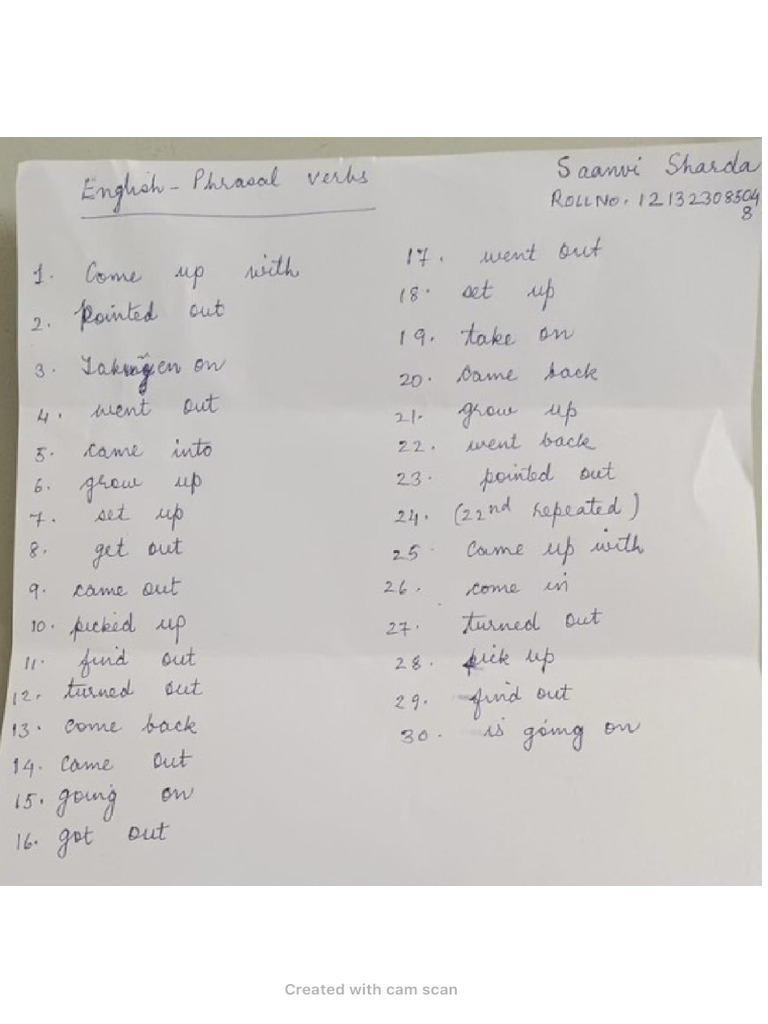 English - Phrasal verbs
Saanvi Sharda
ROLL NO. 12132308504
8
1. Come up with
2. Pointed out
3. on
4. went out
5. came into
6. grow up
7. set up
8. get out
9. came out
10. picked up
11. find out
12. turned out
13. come back
14. Came out
15. going on
16. got out
17. went out
18. set up
19. take on
20. came back
21. grow up
22. went back
23. pointed out
24. (22nd repeated)
25. Came up with
26. come in
27. turned out
28. pick up
29. find out
30. is going on
Created with cam scan